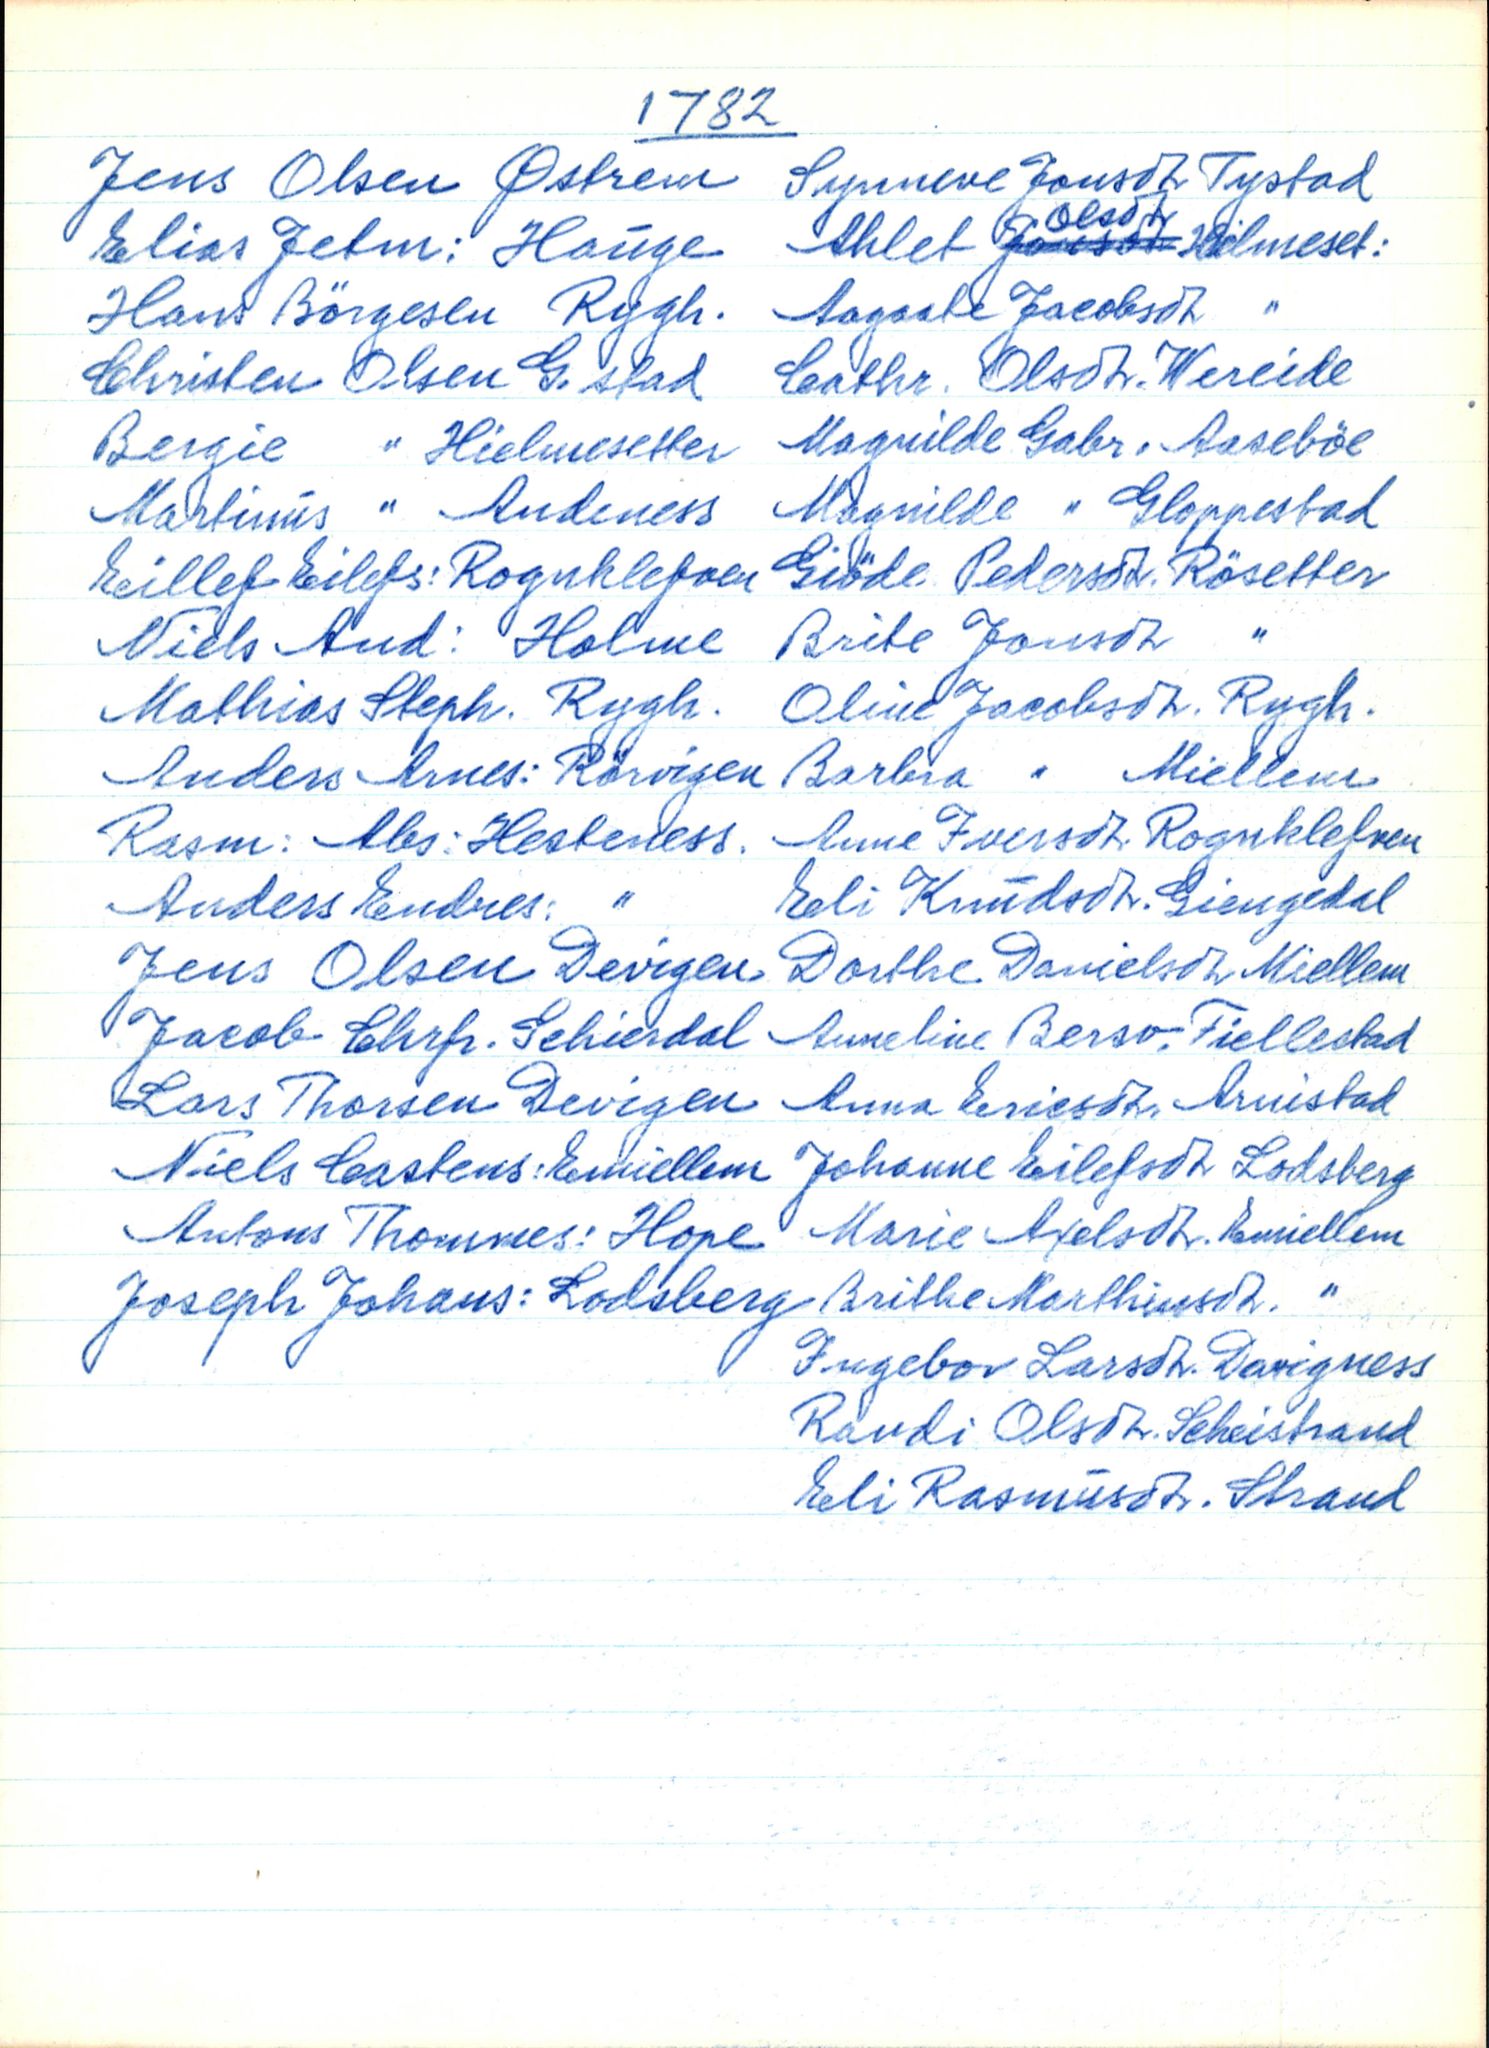 1782
Jens Olsen Østrem Synneve Jonsdtr Tystad
Elias Jetm: Hauge Ahlet Olsdtr Hilmeset:
Hans Börgesen Rygh. Aagaate Jacobsdtr "
Christen Olsen G.stad Cathr. Olsdtr. Wereide
Bergie " Hielmesetter Magnilde Gabr. Aaseböe
Martinus " Andeness Magnilde " Gloppestad
Eillef Eilefs: Rognklefven Giöde Pedersdtr. Rösetter
Niels And: Holme Brite Jonsdtr "
Mathias Steph. Rygh. Oline Jacobsdtr. Rygh.
Anders Arnes: Rörvigen Barbra " Miellem
Rasm: Abs: Hesteness. Anne Iversdtr. Rognklefven
Anders Endres: " Eli Knudsdtr. Giengedal
Jens Olsen Devigen Dorthe Danielsdtr Miellem
Jacob Chrfr. Schierdal Anneline Bersv: Fiellestad
Lars Thorsen Devigen Anna Ericsdtr. Arnistad
Niels Castens: Emiellem Johanne Eilefsdtr Lodsberg
Antons Thommes: Hope Marie Axelsdtr. Emiellem
Joseph Johans: Lodsberg Brithe Marthinsdtr. "
Ingebor Larsdtr. Davigness
Randi Olsdtr. Scheistrand
Eli Rasmusdtr. Strand